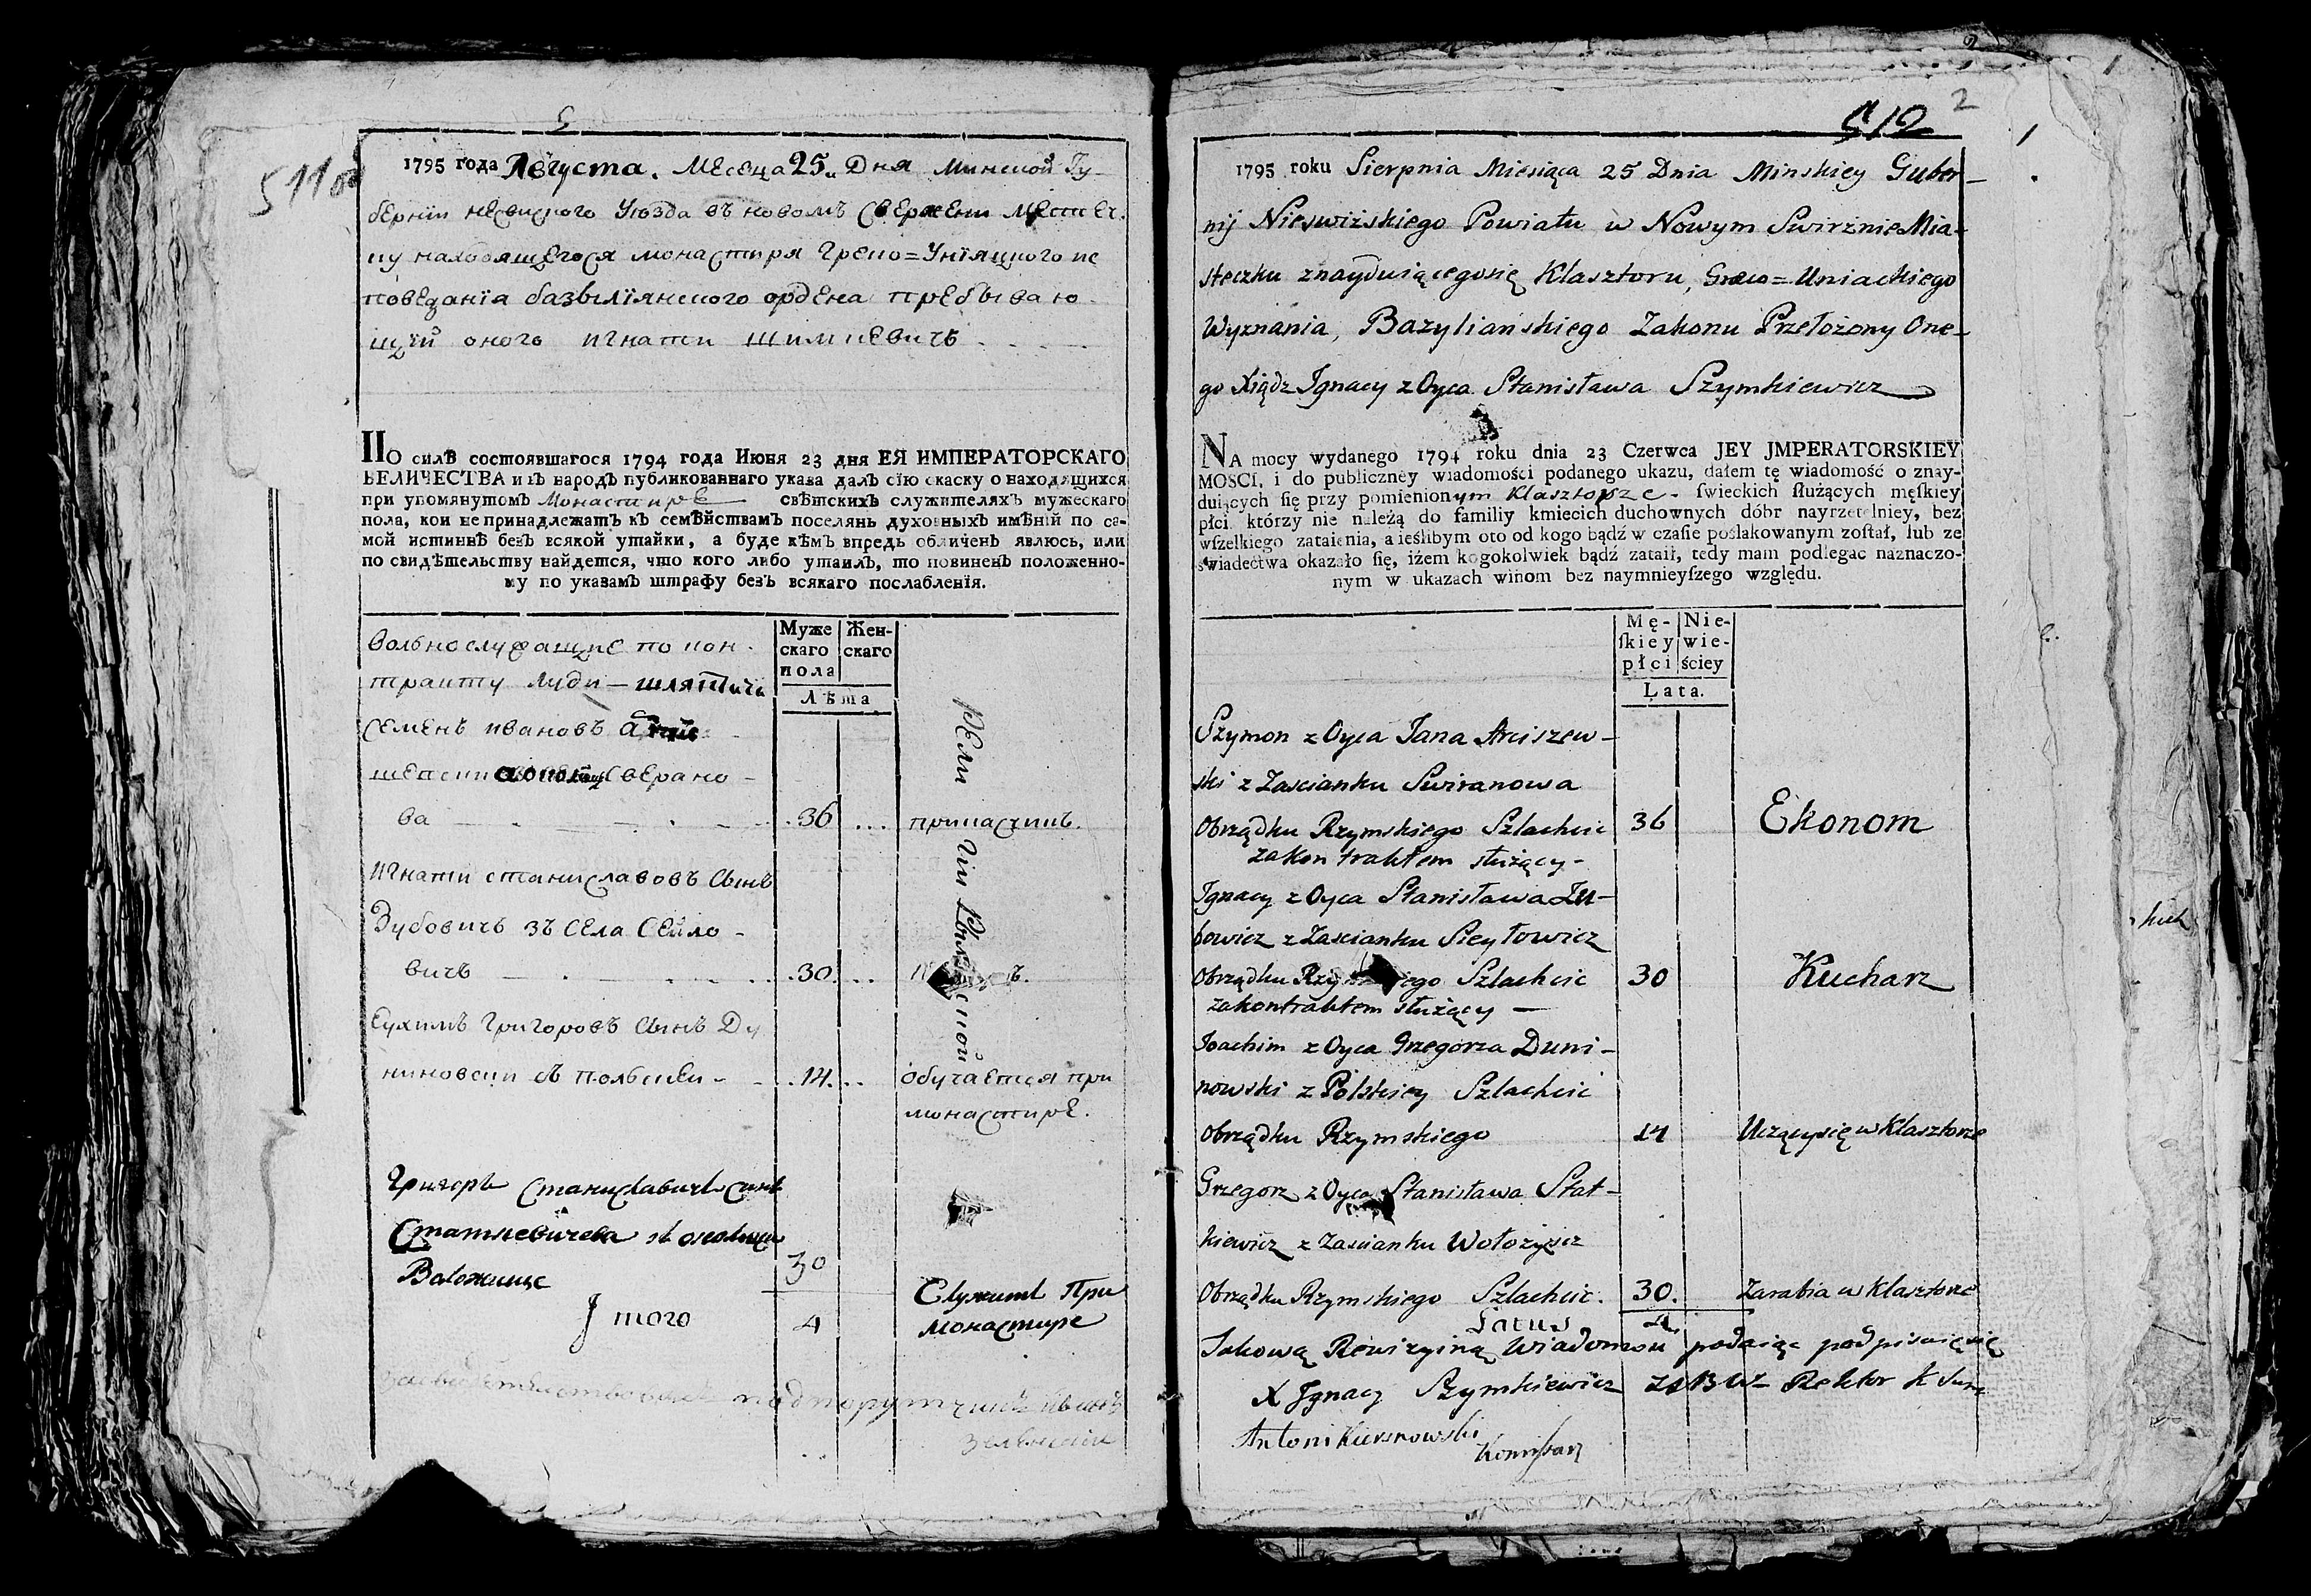 511об
1795 года Августа. Месеца 25. Дня Минской Гу-
бернiи несвиского Уѣзда въ новомъ Свержени Местеч.
ку находящегося монастиря Греко=Унiяцкого ис
поведанiя базылiянского ордена пребываю
щiй оного игнати шимкевичъ
ПО силѣ состоявшагося 1794 года Июня 23 дня ЕЯ ИМПЕРАТОРСКАГО
ВЕЛИЧЕСТВА и въ народъ публикованнаго указа далъ сїю скаску о находящихся
при упомянутомъ Монастирѣ свѣтскихъ служителяхъ мужескаго
пола, кои не принадлежатъ къ семѣйствамъ поселянъ духовныхъ имѣнїй по са-
мой истиннѣ безъ всякой утайки, а буде кѣмъ впредь обличенъ явлюсь, или
по свидѣтельству найдется, что кого либо утаилъ, то повиненъ положенно-
му по указамъ штрафу безъ всякаго послабленїя.
Муже Жен-
скаго скаго
пола
Лѣта
вольнослужащие по кон-
тракту люди - шляхтичи
Семенъ ивановъ
Сверано-
ва 36 прикасчикъ.
игнати станиславовъ сынъ
Зубовичъ зъ села Сейло-
вичъ 30
Еухимъ Григоровъ сынъ Ду
ниновски съ польски 14 обучается при
монастирѣ.
Григоръ Станиславичъ синъ
Статкевичева
Воложинце 30
Служитъ При
Jтого 4 монастире
подпорутчикъ
512
2
1795 roku Sierpnia Miesiąca 25 Dnia Minskiey Guber-
nij Nieswizskiego Powiatu w Nowym Swirznie Mia-
steczku znayduiącegosię Klasztoru, Græco=Uniackiego
Wyznania, Bazylianskiego Zakonu Przełożony One-
go Xiądz Ignacy z Oyca Stanisława Szymkiewicz
NA mocy wydanego 1794 roku dnia 23 Czerwca JEY JMPERATORSKIEY
MOSCI, i do publiczney wiadomości podanego ukazu, dałem tę wiadomość o znay-
duiących ſię przy pomienionym Klasztorze - ſwieckich ſłużących męſkiey
płci, którzy nie należą do familiy kmiecich duchownych dóbr nayrzetelniey, bez
wſzelkiego zataienia, a ieślibym oto od kogo bądź w czaſie poślakowanym zoſtał, lub ze
świadectwa okazało ſię, iżem kogokolwiek bądź zataił, tedy mam podlegac naznaczo-
nym w ukazach winom bez naymnieyſzego względu.
Mę- Nie-
ſkiey wie-
płci ściey
Lata.
Szymon z Oyca Jana Arciszew-
ski z Zascianku Swiranowa
Obrządku Rzymskiego Szlachcic 36 Ekonom
zakontraktem służący -
Ignacy z Oyca Stanisława Zu-
bowicz z Zascianku Sieyłowicz
Obrządku Rzymskiego Szlachcic 30 Kucharz
zakontraktem służący -
Joachim z Oyca Grzegorza Duni-
nowski z Polskiey Szlachcic
Obrządku Rzymskiego 14 Uczącysię w Klasztorze
Grzegorz z Oyca Stanisława Stat-
kiewicz z Zascianku Wołozysz
Obrządku Rzymskiego Szlachcic. 30. Zarabia w Klasztorze
Latus 4
Takową Rewizyiną Wiadomosc podaiąc podpisuię się
X Ignacy Szymkiewicz ZSBW Rektor K
Antoni Kiersnowski
Komisarz